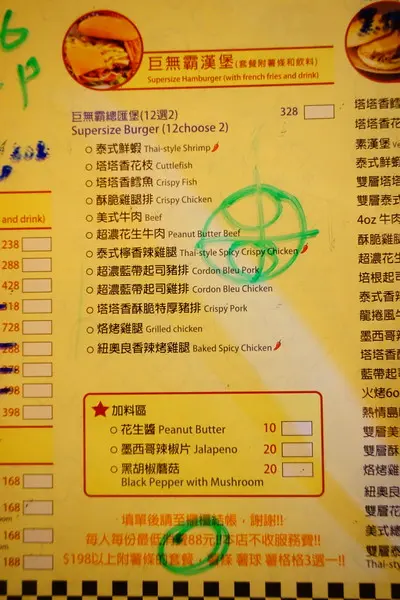 巨無霸漢堡(套餐附薯條和飲料)
Supersize Hamburger (with french fries and drink)
巨無霸總匯堡(12選2) 328
Supersize Burger (12choose 2)
泰式鮮蝦 Thai-style Shrimp
塔塔香花枝 Cuttlefish
塔塔香鱈魚 Crispy Fish
酥脆雞腿排 Crispy Chicken
美式牛肉 Beef
超濃花生牛肉 Peanut Butter Beef
泰式檸香辣雞腿 Thai-style Spicy Crispy Chicken
超濃藍帶起司豬排 Cordon Bleu Pork
超濃藍帶起司雞排 Cordon Bleu Chicken
塔塔香酥脆特厚豬排 Crispy Pork
烙烤雞腿 Grilled chicken
紐奧良香辣烤雞腿 Baked Spicy Chicken
加料區
花生醬 Peanut Butter 10
墨西哥辣椒片 Jalapeno 20
黑胡椒蘑菇 20
Black Pepper with Mushroom
填單後請至櫃檯結帳，謝謝!!
每人每份最低 88元!!本店不收服務費!!
$198以上附薯條的套餐， 條 薯球 薯格格3選一!!
and drink)
238
288
428
318
728
288
498
398
168
168
188
塔塔香鱈
塔塔香花
素漢堡
泰式鮮蝦
雙層塔塔
雙層泰式
4oz 牛肉
酥脆雞腿
超濃花生
培根起司
泰式香辣
龍捲風牛
墨西哥辣
塔塔香酥
藍帶起司
火烤6o
熱情島
雙層美
雙層酥
烙烤雞
紐奧良
雙層花
美式總
雙層泰
Thai-sty